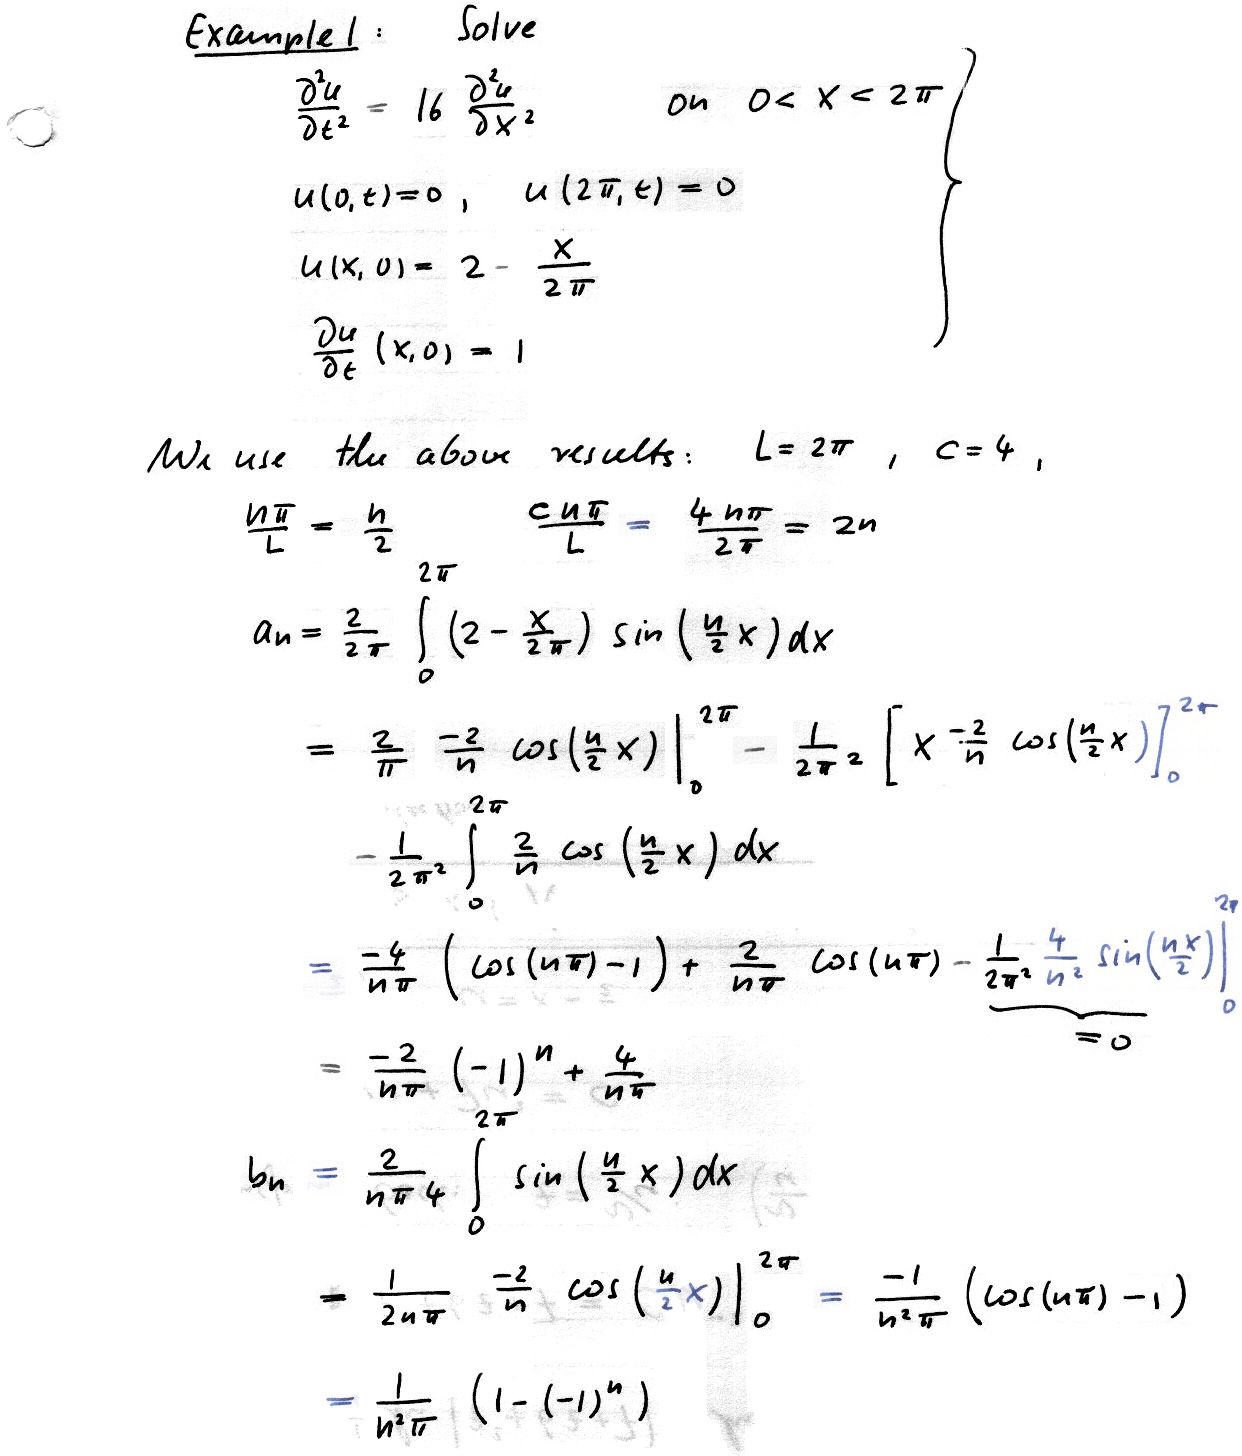 Example 1: Solve
∂²u/∂t² = 16 ∂²u/∂x² on 0 < x < 2π
u(0,t)=0, u(2π,t) = 0
u(x,0) = 2 - x/2π
∂u/∂t (x,0) = 1
We use the above results: L = 2π, c = 4,
nπ/L = n/2 cnπ/L = 4nπ/2π = 2n
an = 2/2π ∫₀^2π (2 - x/2π) sin(n/2 x) dx
= 2/π -2/n cos(n/2 x)|₀^2π - 1/2π² [x -2/n cos(n/2 x)]₀^2π
- 1/2π² ∫₀^2π 2/n cos(n/2 x) dx
= -4/nπ (cos(nπ)-1) + 2/nπ cos(nπ) - 1/2π² 4/n² sin(nx/2)|₀^2π
= 0
= -2/nπ (-1)^n + 4/nπ
bn = 2/nπ4 ∫₀^2π sin(n/2 x) dx
= 1/2nπ -2/n cos(n/2 x)|₀^2π = -1/n²π (cos(nπ) - 1)
= 1/n²π (1-(-1)^n)